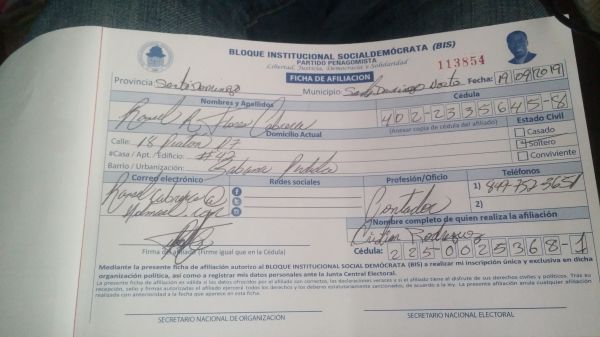 BLOQUE INSTITUCIONAL SOCIALDEMÓCRATA (BIS)
PARTIDO PEÑAGOMISTA
Libertad, Justicia, Democracia y Solidaridad
113854
FICHA DE AFILIACION
Provincia: Santo Domingo Municipio: Santo Domingo Norte Fecha: 19/09/2019
Nombres y Apellidos Cédula
402-2335645-8
(Anexar copia de cédula del afiliado)
Domicilio Actual Estado Civil
Calle: 18
#Casa / Apt. / Edificio: #
Barrio / Urbanización: Sabana Perdida
Casado
Soltero
Conviviente
Correo electrónico Redes sociales Profesión/Oficio Teléfonos
1)
2)
Contador
Nombre completo de quien realiza la afiliación
Cristian Rodriguez
Cédula: 225-0025368-1
Firma del afiliado (Firme igual que en la Cédula)
Mediante la presente ficha de afiliación autorizo al BLOQUE INSTITUCIONAL SOCIAL DEMÓCRATA (BIS) a realizar mi inscripción única y exclusiva en dicha
organización política, así como a registrar mis datos personales ante la Junta Central Electoral.
La presente ficha de afiliación es válida si los datos ofrecidos por el afiliado son correctos, las declaraciones veraces y si el afiliado tiene el disfrute de sus derechos civiles y políticos. Tras su
recepción, sello y firmas autorizadas el afiliado ejercerá todos los derechos y los deberes estatutariamente sancionados, de acuerdo a la ley. La presente afiliación anula cualquier afiliación
realizada con anterioridad a la fecha que aparece en esta ficha.
SECRETARIO NACIONAL DE ORGANIZACIÓN SECRETARIO NACIONAL ELECTORAL